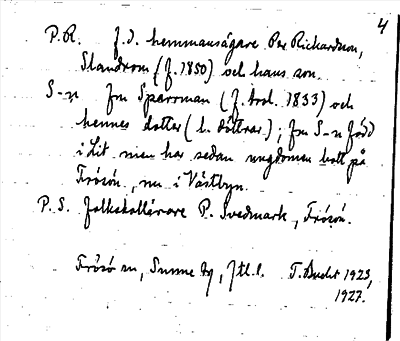 4
P.R. f.d. hemmansägare Per Richardson,
Slandrom (f. 1850) och hans son.
S-n fru Sparrman (f. trol. 1833) och
hennes dotter (l. döttrar); fru S-n född
i Lit men har sedan ungdomen bott på
Frösön, nu i Västbyn.
P.S. folkskollärare P. Svedmark, Frösön.
Frösö sn, Sunne tg, Jtl.l. T. Bucht 1923,
1927.